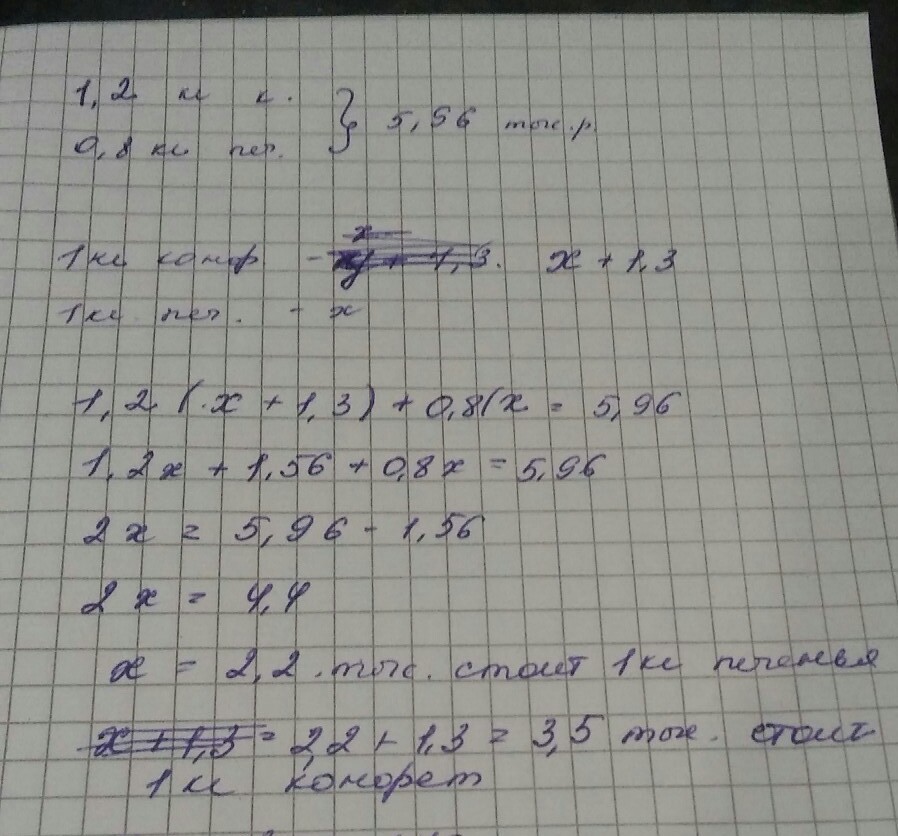 1,2 кг к. } 5,56 тыс.р.
0,8 кг печ.
1кг конф - x + 1,3
1кг печ. - x
1,2 (x + 1,3) + 0,8(x = 5,96
1,2x + 1,56 + 0,8x = 5,96
2x = 5,96 - 1,56
2x = 4,4
x = 2,2 тыс. стоит 1кг печенья
x + 1,3 = 2,2 + 1,3 = 3,5 тыс. стоит
1 кг конфет